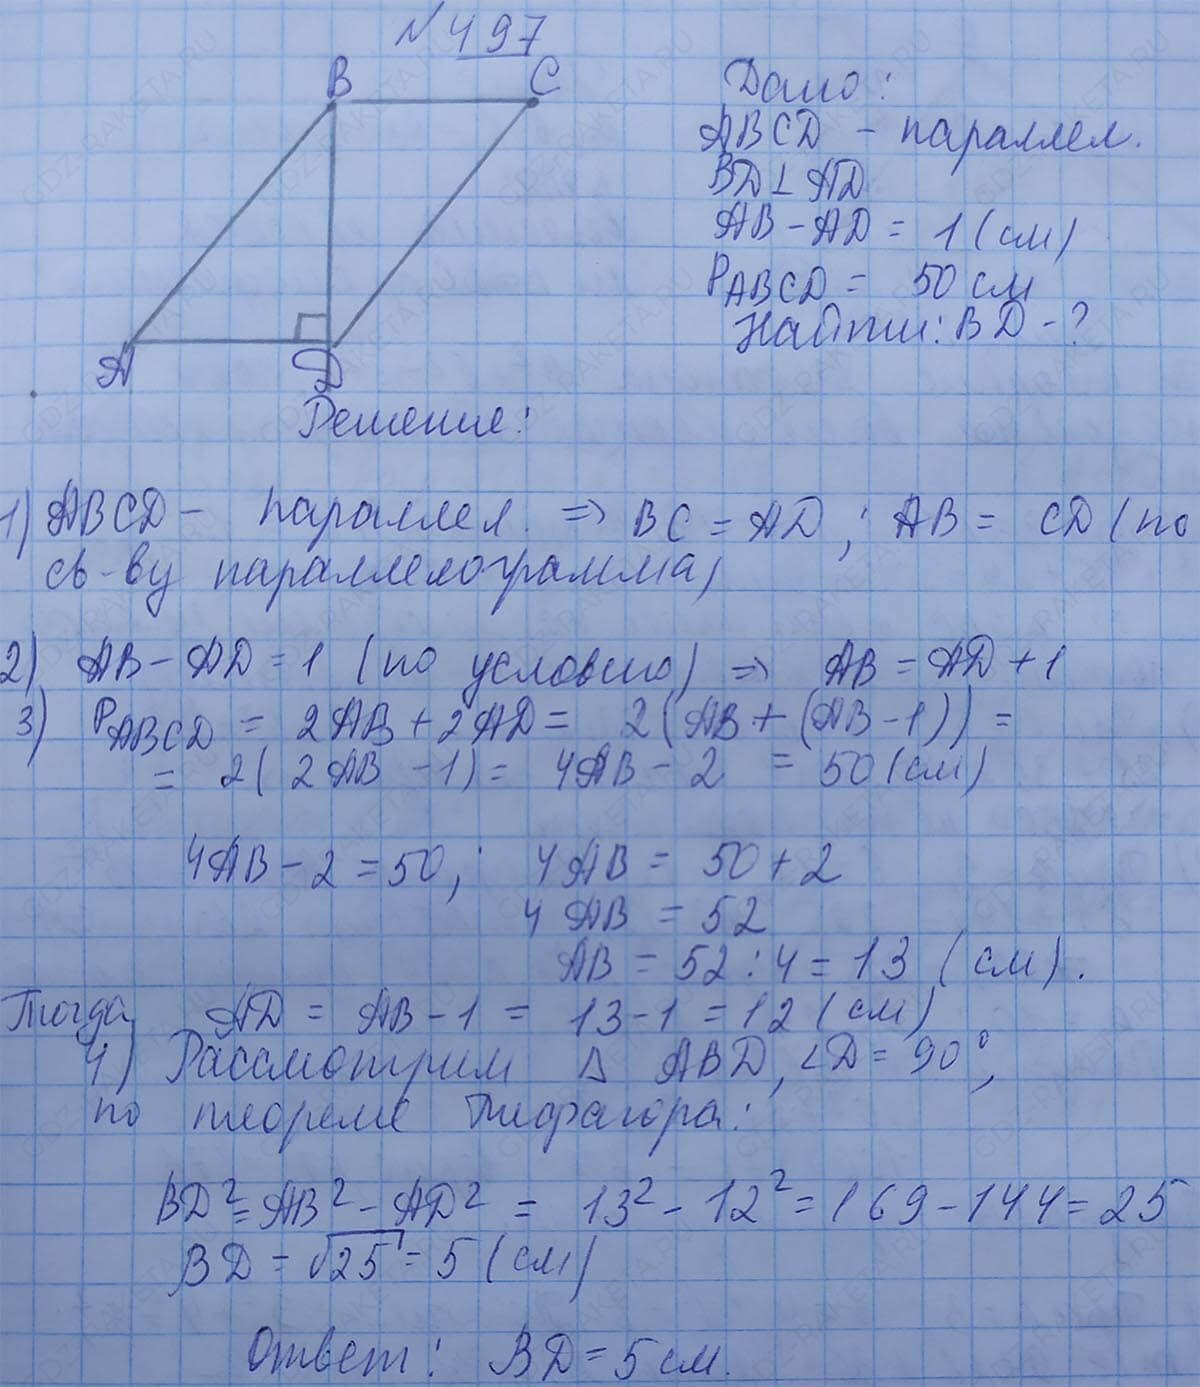 №497
B C
A D
Дано:
ABCD - параллел.
BD⊥AD
AB-AD = 1 (см)
PABCD = 50 см
Найти: BD-?
Решение:
1) ABCD - параллел. => BC = AD; AB = CD (по
св-ву параллелограмма)
2) AB-AD=1 (по условию) => AB = AD+1
3) PABCD = 2AB+2AD= 2(AB+(AB-1)) =
= 2(2AB-1)= 4AB-2 = 50 (см)
4AB-2=50; 4AB = 50+2
4AB = 52
AB = 52:4=13 (см).
Тогда AD = AB-1 = 13-1 =12 (см)
4) Рассмотрим Δ ABD, ∠D=90°,
по теореме Пифагора:
BD²=AB²-AD² = 13²-12²=169-144=25
BD=√25=5 (см)
Ответ: BD=5см.